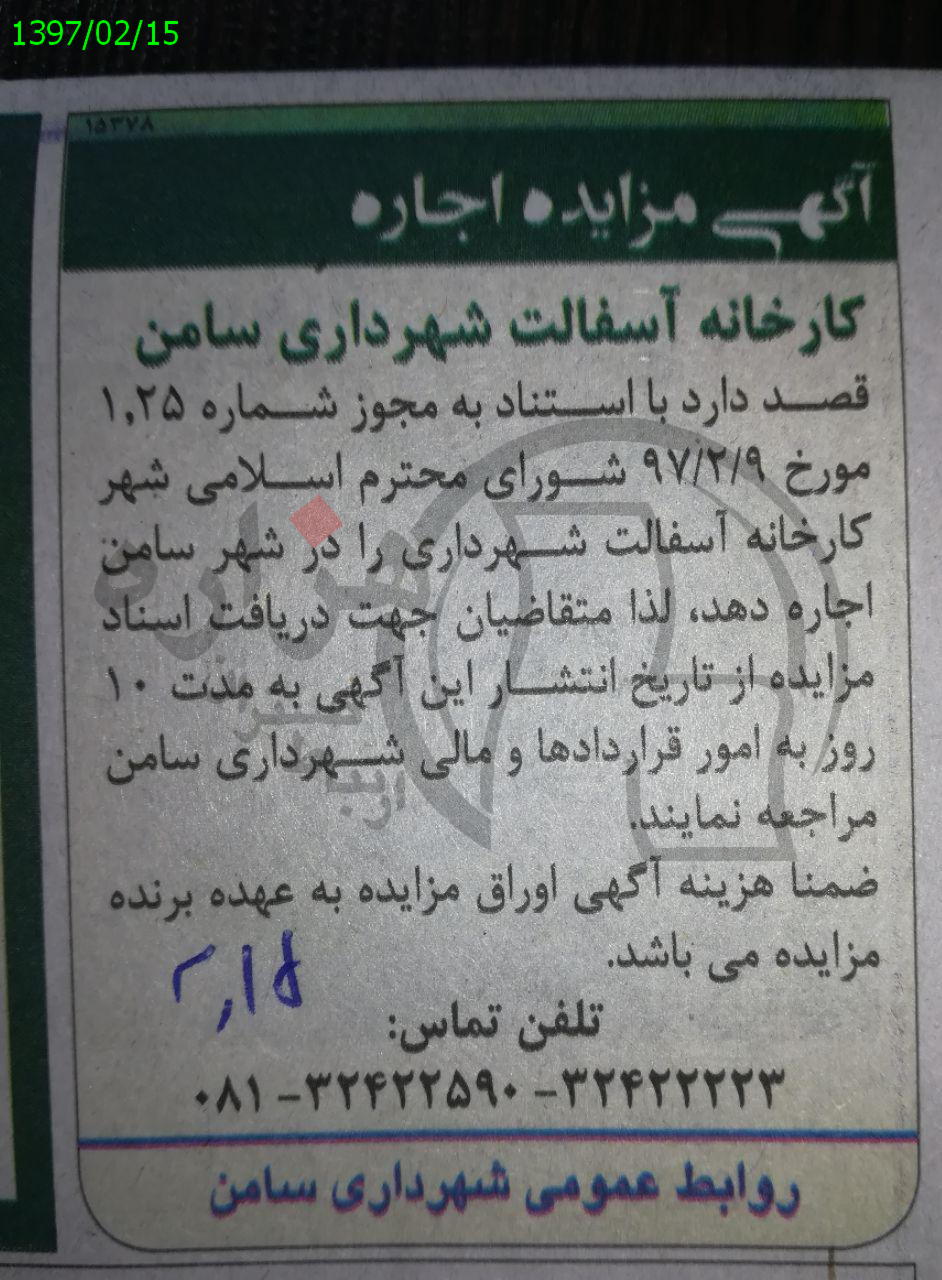 1397/02/15
۱۵۳۷۸
آگهی مزایده اجاره
کارخانه آسفالت شهرداری سامن
قصد دارد با استناد به مجوز شماره ۱,۲۵
مورخ ۹۷/۲/۹ شورای محترم اسلامی شهر
کارخانه آسفالت شهرداری را در شهر سامن
اجاره دهد، لذا متقاضیان جهت دریافت اسناد
مزایده از تاریخ انتشار این آگهی به مدت ۱۰
روز به امور قراردادها و مالی شهرداری سامن
مراجعه نمایند.
ضمنا هزینه آگهی اوراق مزایده به عهده برنده
مزایده می باشد.
تلفن تماس:
۰۸۱-۳۲۴۲۲۵۹۰-۳۲۴۲۲۲۲۳
روابط عمومی شهرداری سامن
هزاره